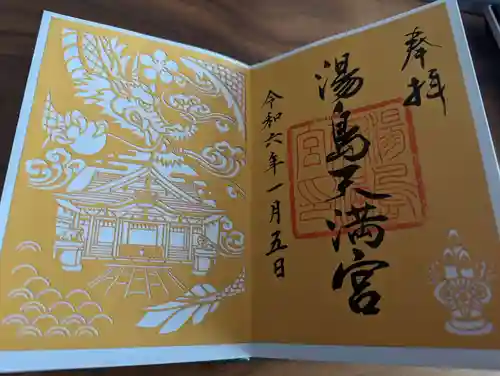 奉拝
湯島天満宮
令和六年一月五日